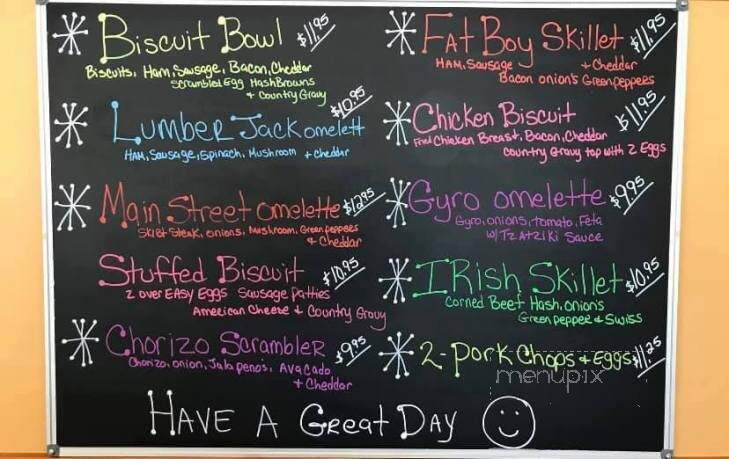 Biscuit Bowl $11.95
Biscuits, Ham, Sausage, Bacon, Cheddar
Scrambled Egg HashBrowns
+ Country Gravy
LumberJack omelett $10.95
Ham, Sausage, Spinach, Mushroom + cheddar
Main Street omelette $12.95
Skirt Steak, onions, Mushroom, Green peppers
+ Cheddar
Stuffed Biscuit $10.95
2 over EASY Eggs Sausage Patties
American Cheese + Country Gravy
Chorizo Scrambler $9.95
Chorizo, onion, Jalapenos, Avacado
+ Cheddar
Fat Boy Skillet $11.95
Ham, Sausage + Cheddar
Bacon onion's Green peppers
Chicken Biscuit $11.95
Fried Chicken Breast, Bacon, Cheddar
Country Gravy top with 2 Eggs
Gyro omelette $9.95
Gyro, onions, tomato, Feta
w/ Tzatziki Sauce
IRish Skillet $10.95
Corned Beef Hash, onion's
Green pepper + Swiss
2-Pork Chops + Eggs $11.25
menupix
Have A Great Day